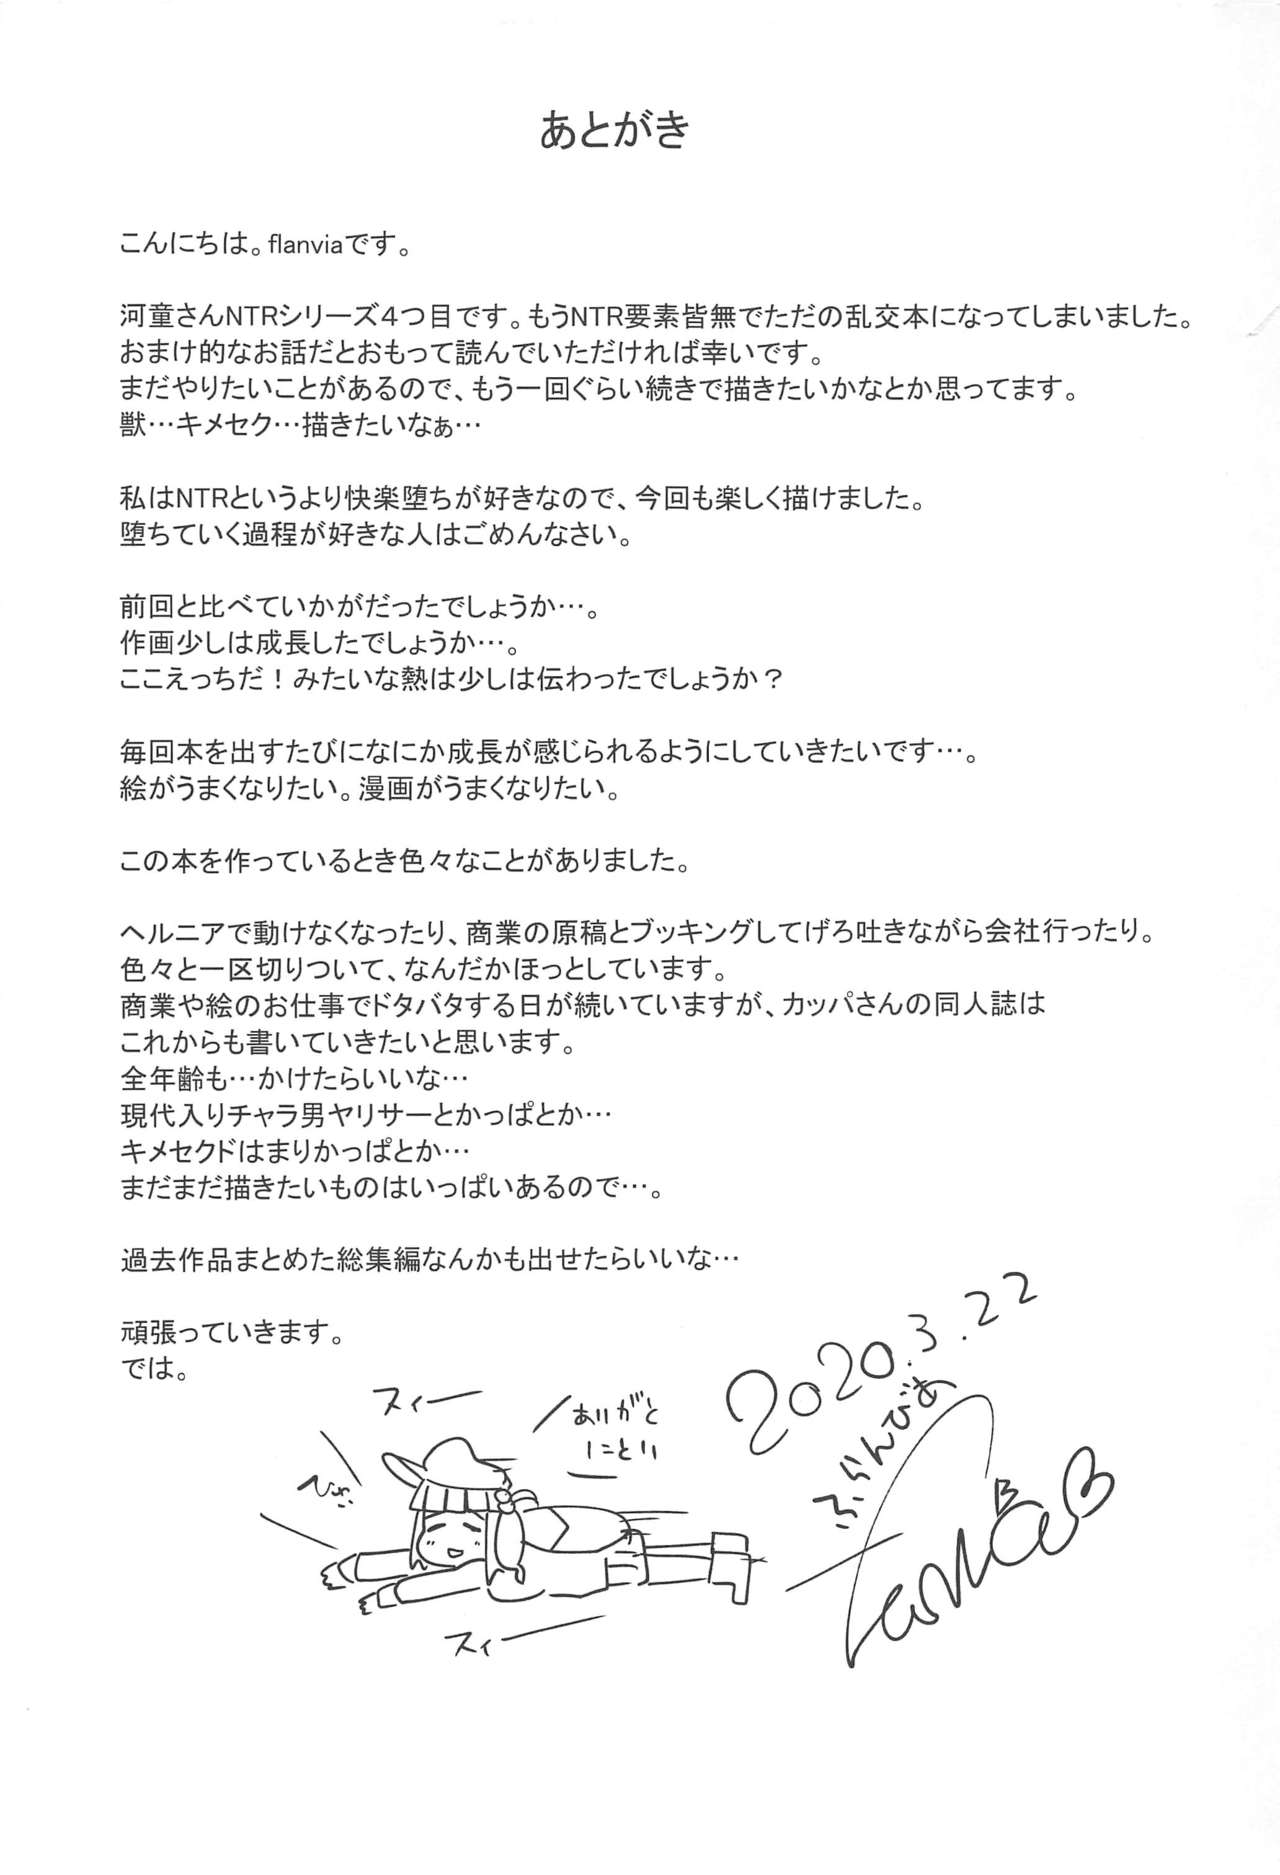 あとがき
こんにちは。flanviaです。
河童さんNTRシリーズ４つ目です。もうNTR要素皆無でただの乱交本になってしまいました。
おまけ的なお話だとおもって読んでいただければ幸いです。
まだやりたいことがあるので、もう一回ぐらい続きで描きたいかなとか思ってます。
獣…キメセク…描きたいなぁ…
私はNTRというより快楽堕ちが好きなので、今回も楽しく描けました。
堕ちていく過程が好きな人はごめんなさい。
前回と比べていかがだったでしょうか…。
作画少しは成長したでしょうか…。
ここえっちだ！みたいな熱は少しは伝わったでしょうか？
毎回本を出すたびになにか成長が感じられるようにしていきたいです…。
絵がうまくなりたい。漫画がうまくなりたい。
この本を作っているとき色々なことがありました。
ヘルニアで動けなくなったり、商業の原稿とブッキングしてげろ吐きながら会社行ったり。
色々と一区切りついて、なんだかほっとしています。
商業や絵のお仕事でドタバタする日が続いていますが、カッパさんの同人誌は
これからも書いていきたいと思います。
全年齢も…かけたらいいな…
現代入りチャラ男ヤリサーとかっぱとか…
キメセクドはまりかっぱとか…
まだまだ描きたいものはいっぱいあるので…。
過去作品まとめた総集編なんかも出せたらいいな…
頑張っていきます。
では。
2020.3.22
ふらんびあ
スィー
ありがと
にとり
スィー